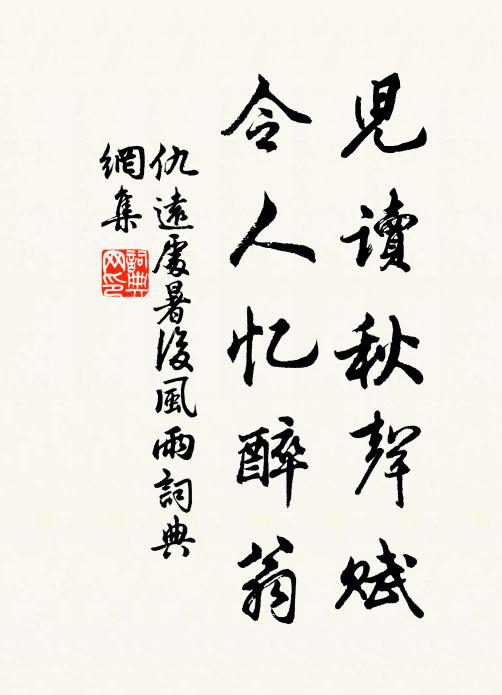 兒讀秋聲賦
令人忆醉翁
仇遠處暑後風雨詞典
網集
詞典
网印